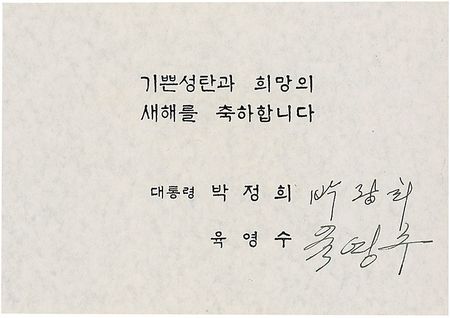 기쁜성탄과 희망의
새해를 축하합니다
대통령 박정희 박정희
육영수 육영수